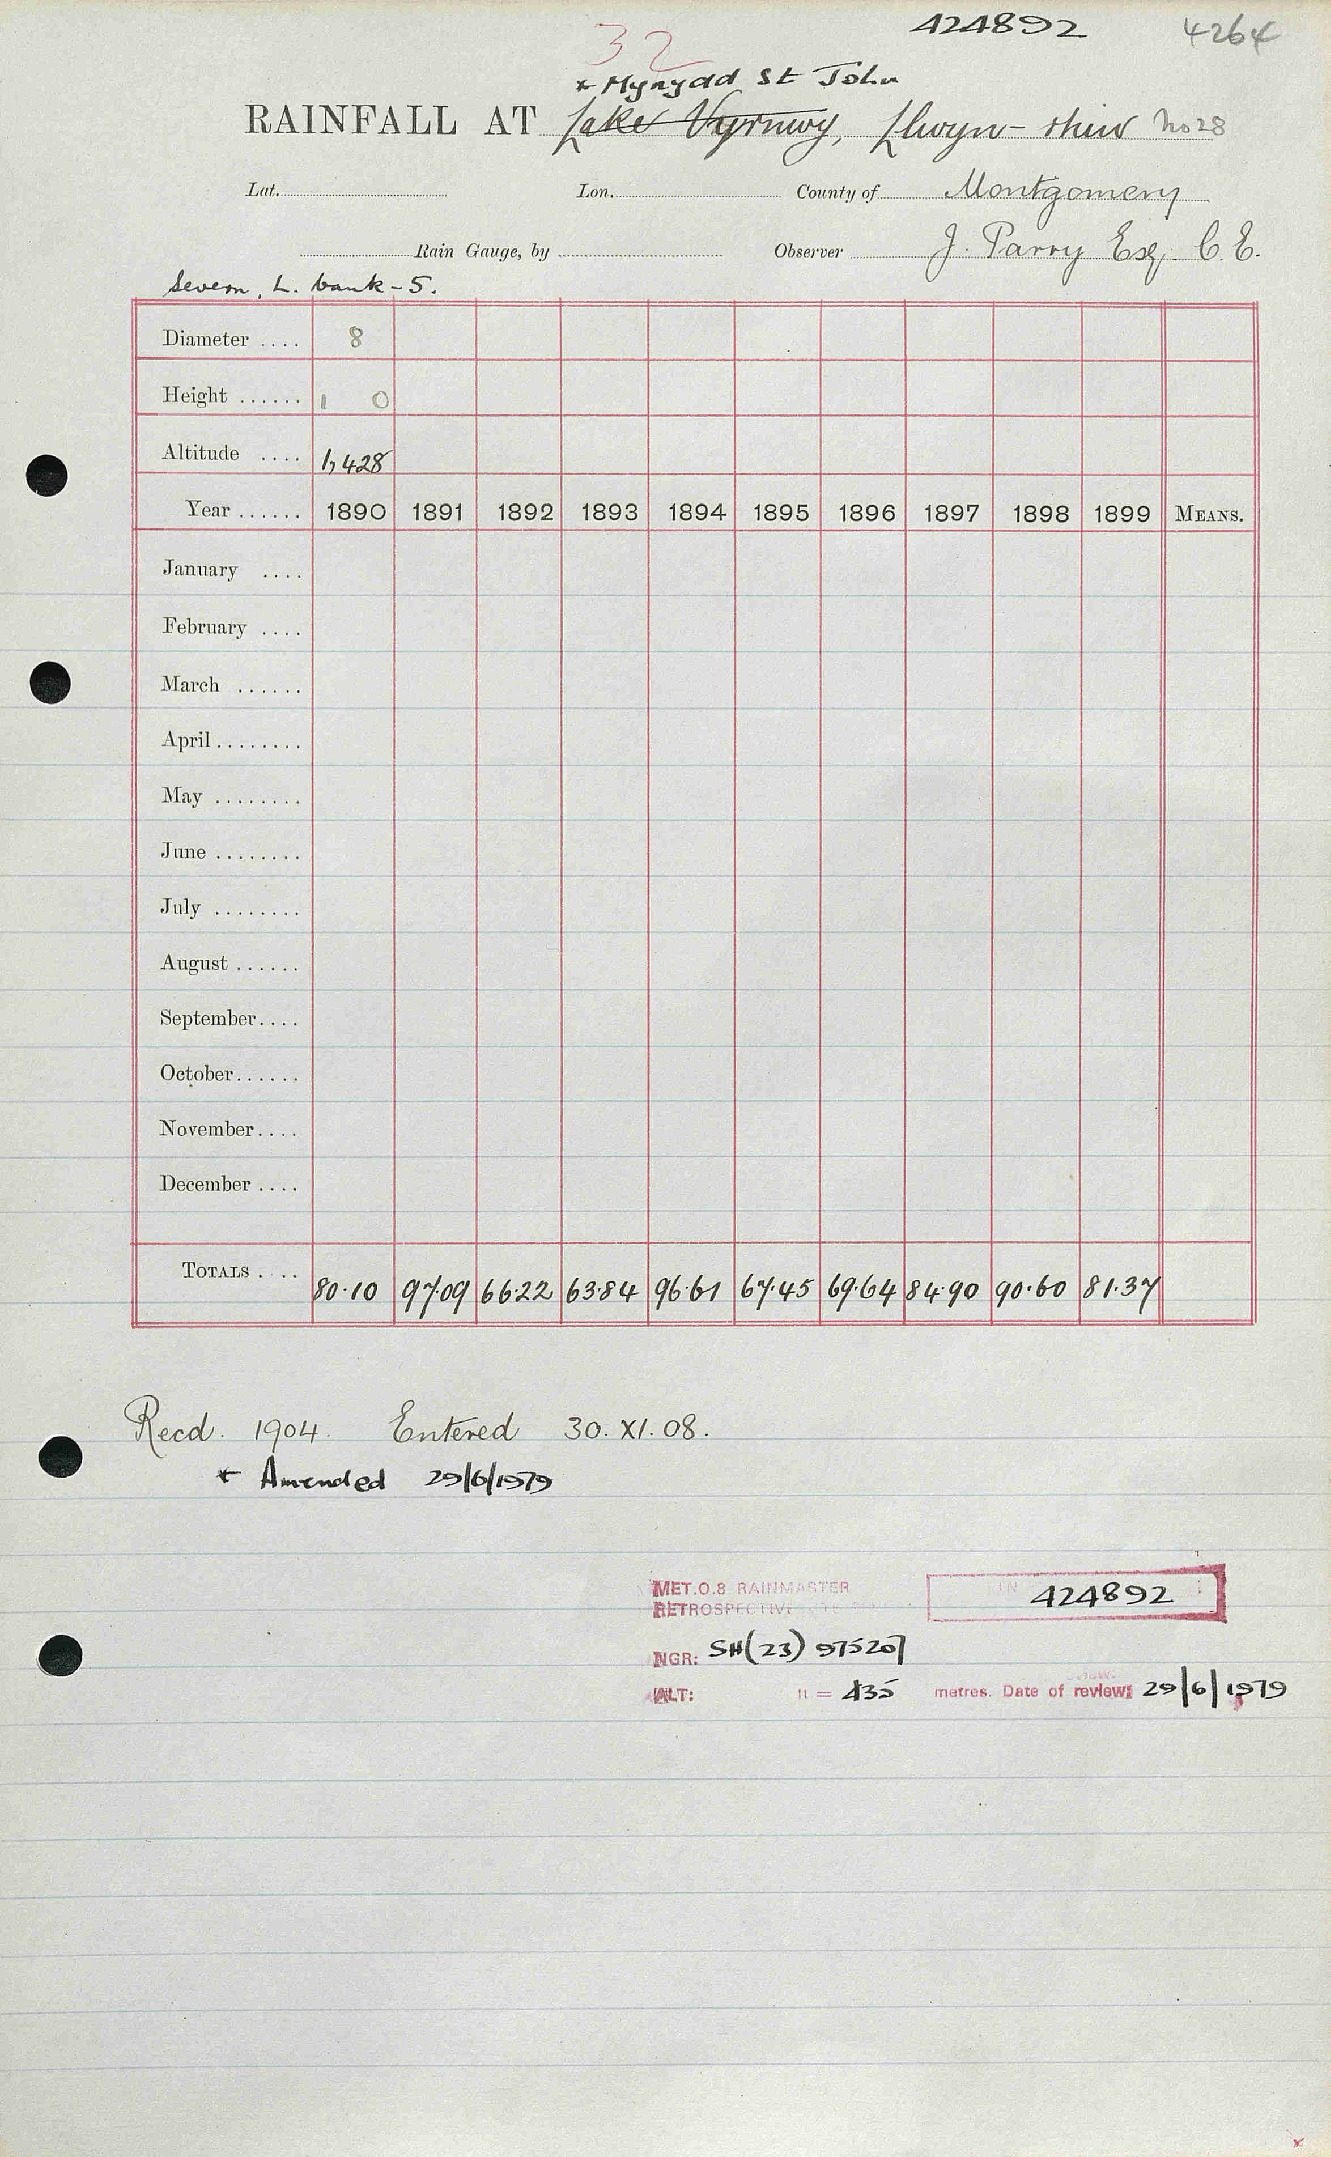 424892 4264
32
* Mynydd St John
RAINFALL AT Lake Vyrnwy, Llwyn-rhiw No 28
Lat. Lon. County of Montgomery
Rain Gauge, by Observer J. Parry Esq. C.E.
Severn, L. bank - 5.
Diameter .... 8
Height ...... 1 0
Altitude .... 1,428
Year ...... 1890 1891 1892 1893 1894 1895 1896 1897 1898 1899 MEANS.
January ....
February ....
March ......
April ........
May ........
June ........
July ........
August ......
September....
October......
November....
December ....
TOTALS .... 80.10 97.09 66.22 63.84 96.61 67.45 69.64 84.90 90.60 81.37
Recd. 1904. Entered 30. XI. 08.
* Amended 29/6/1979
MET.O.8 RAINMASTER
RETROSPECTIVE
424892
NGR: SH(23) 975207
ALT: ft = 435 metres. Date of review: 29/6/1979